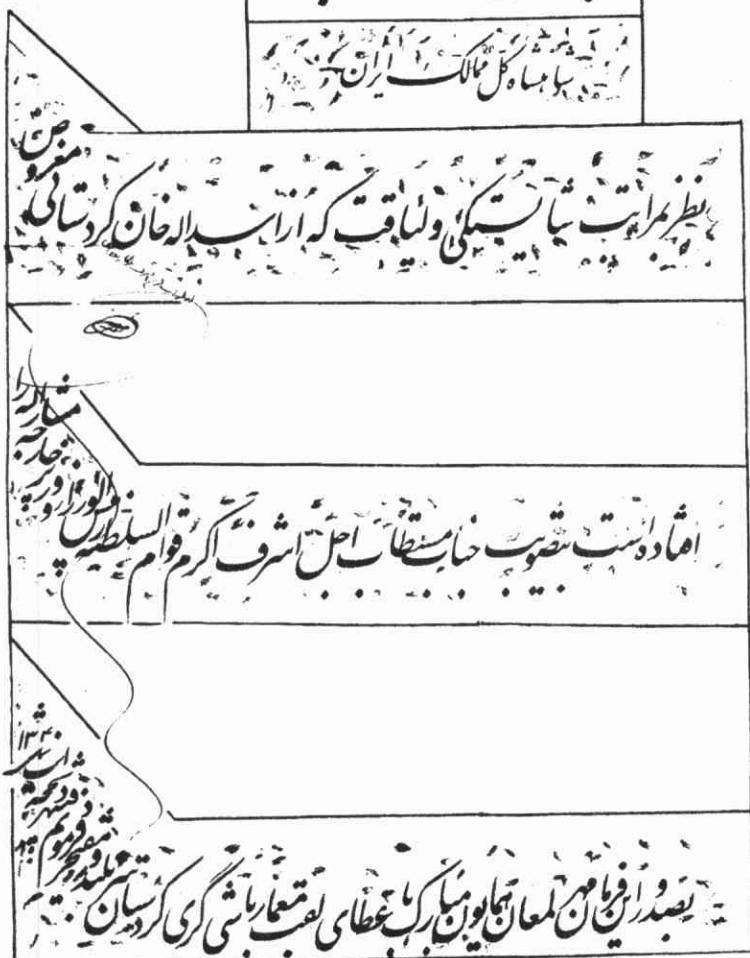 شاهنشاه کل ممالک ایران
نظر بمراتب شایستگی و لیاقت که از اسداله خان کردستانی معروض
افتاده است بتصویب جناب مستطاب اجل اشرف اکرم قوام السلطنه رئیس الوزراء و وزیر خارجه مشارالیه را
بصدور این فرمان مهر لمعان همایون مبارک با عطای لقب معمارباشی گری کردستان سربلند و مفتخر فرمودیم
۱۳۴۰